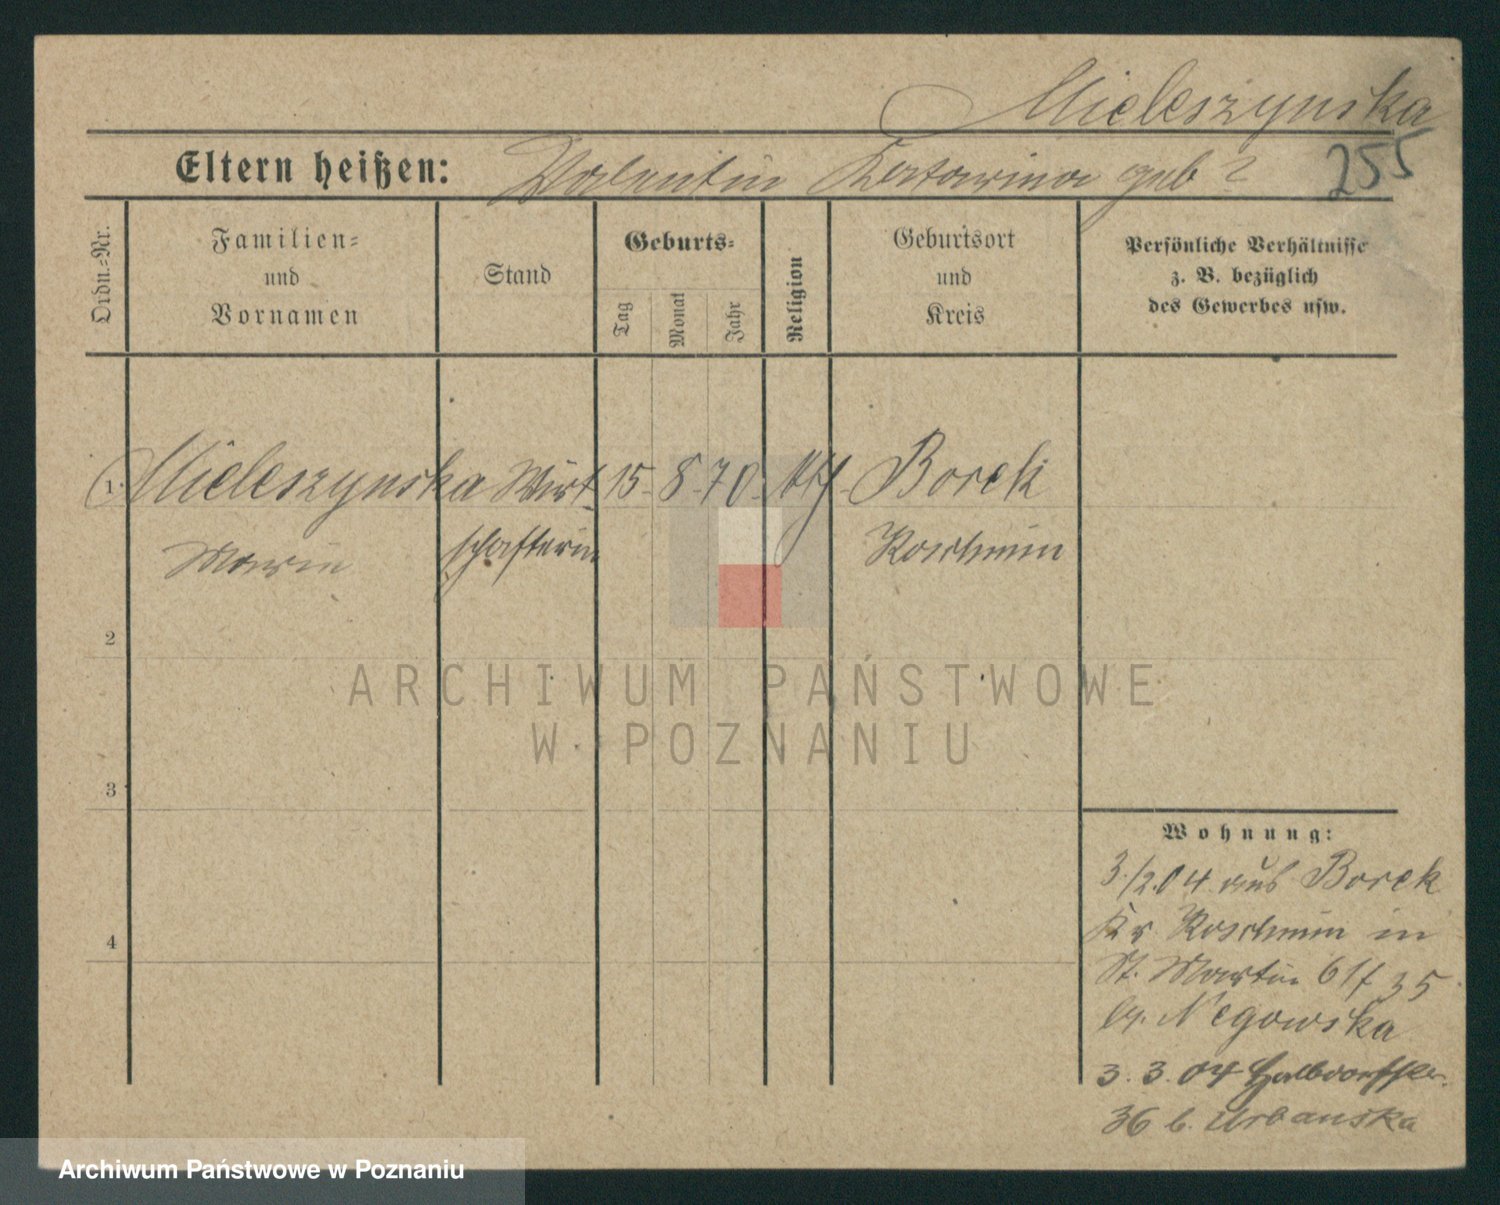 Mieleszynska
Eltern heißen: Valentin Katarina geb ?
255
Ordn.-Nr.
Familien-
und
Vornamen
Stand
Geburts-
Tag
Monat
Jahr
Religion
Geburtsort
und
Kreis
Persönliche Verhältnisse
z. B. bezüglich
des Gewerbes usw.
1. Mieleszynska Wirt- 15. 8. 70. kth. Borek
Marie schafterin Koschmin
2
3
4
Wohnung:
3./2.04 aus Borek
Kr Koschmin in
St. Martin 61 35
Negowska
3. 3. 04 Halbdorfstr.
36 b. Urbanska
ARCHIWUM PAŃSTWOWE
W POZNANIU
Archiwum Państwowe w Poznaniu